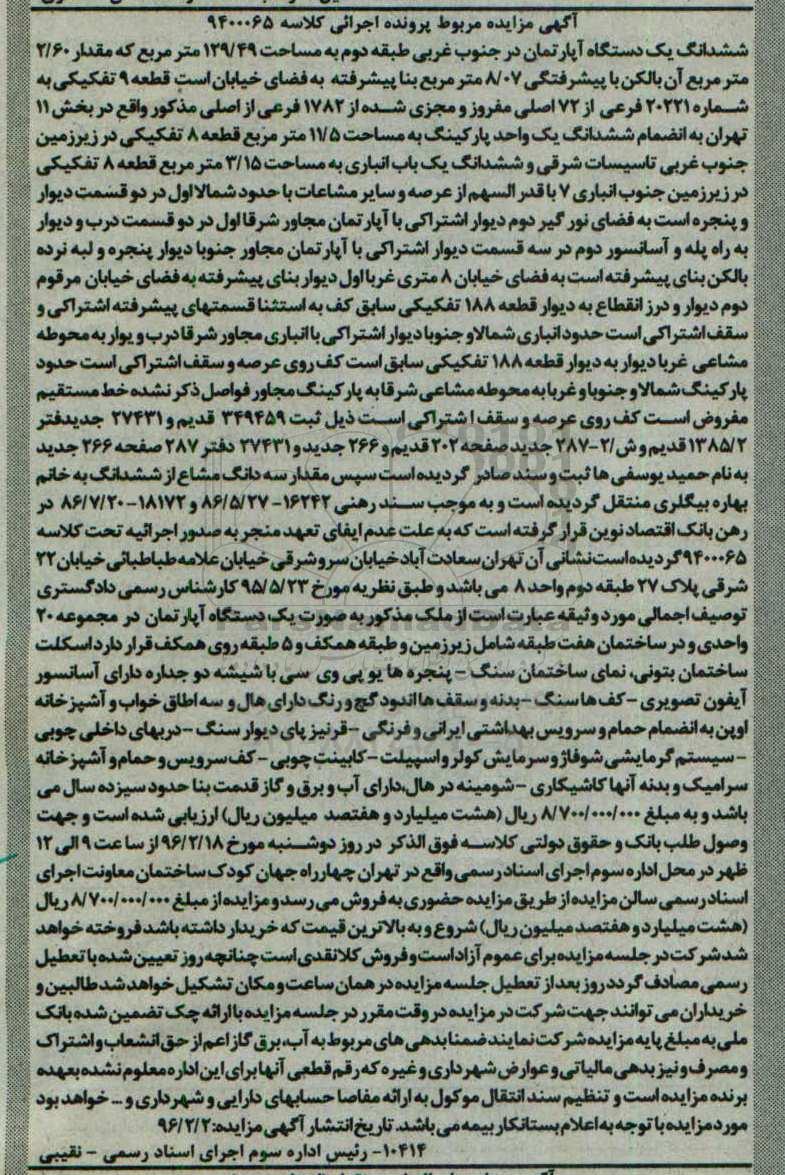 آگهی مزایده مربوط پرونده اجرائی کلاسه ۹۴۰۰۰۶۵
ششدانگ یک دستگاه آپارتمان در جنوب غربی طبقه دوم به مساحت ۱۲۹/۴۹ متر مربع که مقدار ۲/۶۰
متر مربع آن بالکن با پیشرفتگی ۸/۰۷ متر مربع بنا پیشرفته به فضای خیابان است قطعه ۹ تفکیکی به
شماره ۲۰۲۲۱ فرعی از ۷۲ اصلی مفروز و مجزی شده از ۱۷۸۲ فرعی از اصلی مذکور واقع در بخش ۱۱
تهران به انضمام ششدانگ یک واحد پارکینگ به مساحت ۱۱/۵ متر مربع قطعه ۸ تفکیکی در زیرزمین
جنوب غربی تاسیسات شرقی و ششدانگ یک باب انباری به مساحت ۳/۱۵ متر مربع قطعه ۸ تفکیکی
در زیرزمین جنوب انباری ۷ با قدر السهم از عرصه و سایر مشاعات با حدود شمالا اول در دو قسمت دیوار
و پنجره است به فضای نور گیر دوم دیوار اشتراکی با آپارتمان مجاور شرقا اول در دو قسمت درب و دیوار
به راه پله و آسانسور دوم در سه قسمت دیوار اشتراکی با آپارتمان مجاور جنوبا دیوار پنجره و لبه نرده
بالکن بنای پیشرفته است به فضای خیابان ۸ متری غربا اول دیوار بنای پیشرفته به فضای خیابان مرقوم
دوم دیوار و درز انقطاع به دیوار قطعه ۱۸۸ تفکیکی سابق کف به استثنا قسمتهای پیشرفته اشتراکی و
سقف اشتراکی است حدود انباری شمالا و جنوبا دیوار اشتراکی با انباری مجاور شرقا درب و یوار به محوطه
مشاعی غربا دیوار به دیوار قطعه ۱۸۸ تفکیکی سابق است کف روی عرصه و سقف اشتراکی است حدود
پارکینگ شمالا و جنوبا و غربا به محوطه مشاعی شرقا به پارکینگ مجاور فواصل ذکر نشده خط مستقیم
مفروض است کف روی عرصه و سقف اشتراکی است ذیل ثبت ۳۴۹۴۵۹ قدیم و ۲۷۴۳۱ جدیدفتر
۱۳۸۵/۲ قدیم و ش/۲-۲۸۷ جدید صفحه ۲۰۲ قدیم و ۲۶۶ جدید و ۲۷۴۳۱ دفتر ۲۸۷ صفحه ۲۶۶ جدید
به نام حمید یوسفی ها ثبت و سند صادر گردیده است سپس مقدار سه دانگ مشاع از ششدانگ به خانم
بهاره بیگلری منتقل گردیده است و به موجب سند رهنی ۱۶۲۴۲- ۸۶/۵/۲۷ و ۱۸۱۷۲-۸۶/۷/۲۰ در
رهن بانک اقتصاد نوین قرار گرفته است که به علت عدم ایفای تعهد منجر به صدور اجرائیه تحت کلاسه
۹۴۰۰۰۶۵ گردیده است نشانی آن تهران سعادت آباد خیابان سرو شرقی خیابان علامه طباطبائی خیابان ۲۲
شرقی پلاک ۲۷ طبقه دوم واحد ۸ می باشد و طبق نظریه مورخ ۹۵/۵/۲۳ کارشناس رسمی دادگستری
توصیف اجمالی مورد وثیقه عبارت است از ملک مذکور به صورت یک دستگاه آپارتمان در مجموعه ۲۰
واحدی و در ساختمان هفت طبقه شامل زیرزمین و طبقه همکف و ۵ طبقه روی همکف قرار دارد اسکلت
ساختمان بتونی، نمای ساختمان سنگ - پنجره ها یو پی وی سی با شیشه دو جداره دارای آسانسور
آیفون تصویری - کف ها سنگ - بدنه و سقف ها اندود گچ و رنگ دارای هال و سه اطاق خواب و آشپزخانه
اوپن به انضمام حمام و سرویس بهداشتی ایرانی و فرنگی - قرنیز پای دیوار سنگ - دربهای داخلی چوبی
- سیستم گرمایشی شوفاژ و سرمایش کولر و اسپیلت - کابینت چوبی - کف سرویس و حمام و آشپزخانه
سرامیک و بدنه آنها کاشیکاری - شومینه در هال،دارای آب و برق و گاز قدمت بنا حدود سیزده سال می
باشد و به مبلغ ۸/۷۰۰/۰۰۰/۰۰۰ ریال (هشت میلیارد و هفتصد میلیون ریال) ارزیابی شده است و جهت
وصول طلب بانک و حقوق دولتی کلاسه فوق الذکر در روز دوشنبه مورخ ۹۶/۲/۱۸ از ساعت ۹ الی ۱۲
ظهر در محل اداره سوم اجرای اسناد رسمی واقع در تهران چهارراه جهان کودک ساختمان معاونت اجرای
اسناد رسمی سالن مزایده از طریق مزایده حضوری به فروش می رسد و مزایده از مبلغ ۸/۷۰۰/۰۰۰/۰۰۰ ریال
(هشت میلیارد و هفتصد میلیون ریال) شروع و به بالاترین قیمت که خریدار داشته باشد فروخته خواهد
شد شرکت در جلسه مزایده برای عموم آزاد است و فروش کلا نقدی است چنانچه روز تعیین شده با تعطیل
رسمی مصادف گردد روز بعد از تعطیل جلسه مزایده در همان ساعت و مکان تشکیل خواهد شد طالبین و
خریداران می توانند جهت شرکت در مزایده در وقت مقرر در جلسه مزایده با ارائه چک تضمین شده بانک
ملی به مبلغ پایه مزایده شرکت نمایند ضمنا بدهی های مربوط به آب، برق گاز اعم از حق انشعاب و اشتراک
و مصرف و نیز بدهی مالیاتی و عوارض شهرداری و غیره که رقم قطعی آنها برای این اداره معلوم نشده بعهده
برنده مزایده است و تنظیم سند انتقال موکول به ارائه مفاصا حسابهای دارایی و شهرداری و ... خواهد بود
مورد مزایده با توجه به اعلام بستانکار بیمه می باشد. تاریخ انتشار آگهی مزایده: ۹۶/۲/۲
۱۰۴۱۴- رئیس اداره سوم اجرای اسناد رسمی - نقیبی